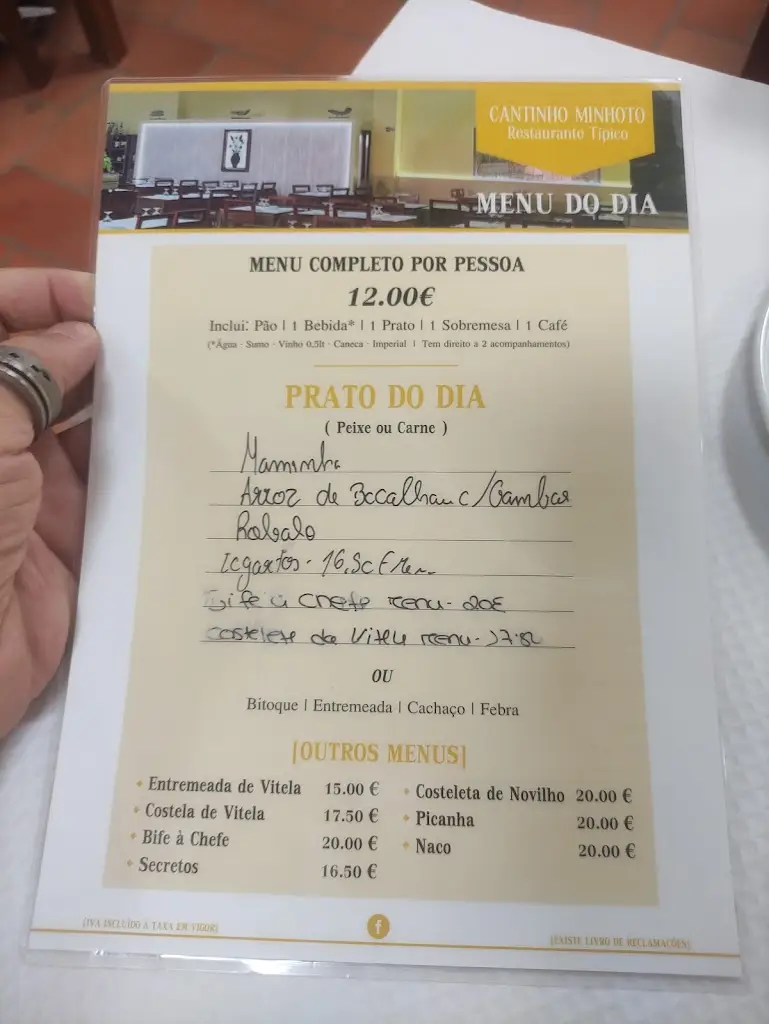 CANTINHO MINHOTO
Restaurante Típico
MENU DO DIA
MENU COMPLETO POR PESSOA
12.00€
Inclui: Pão | 1 Bebida* | 1 Prato | 1 Sobremesa | 1 Café
(*Água - Sumo - Vinho 0,5lt - Caneca - Imperial | Tem direito a 2 acompanhamentos)
PRATO DO DIA
( Peixe ou Carne )
Maminha
Arroz de Bacalhau c/Gambas
Robalo
Lagartos - 16,50€
Bife à Chefe menu - 20€
Costelete de Vitela menu -
OU
Bitoque | Entremeada | Cachaço | Febra
[OUTROS MENUS]
Entremeada de Vitela 15.00 €
Costela de Vitela 17.50 €
Bife à Chefe 20.00 €
Secretos 16.50 €
Costeleta de Novilho 20.00 €
Picanha 20.00 €
Naco 20.00 €
[IVA INCLUÍDO À TAXA EM VIGOR]
f
[EXISTE LIVRO DE RECLAMAÇÕES]